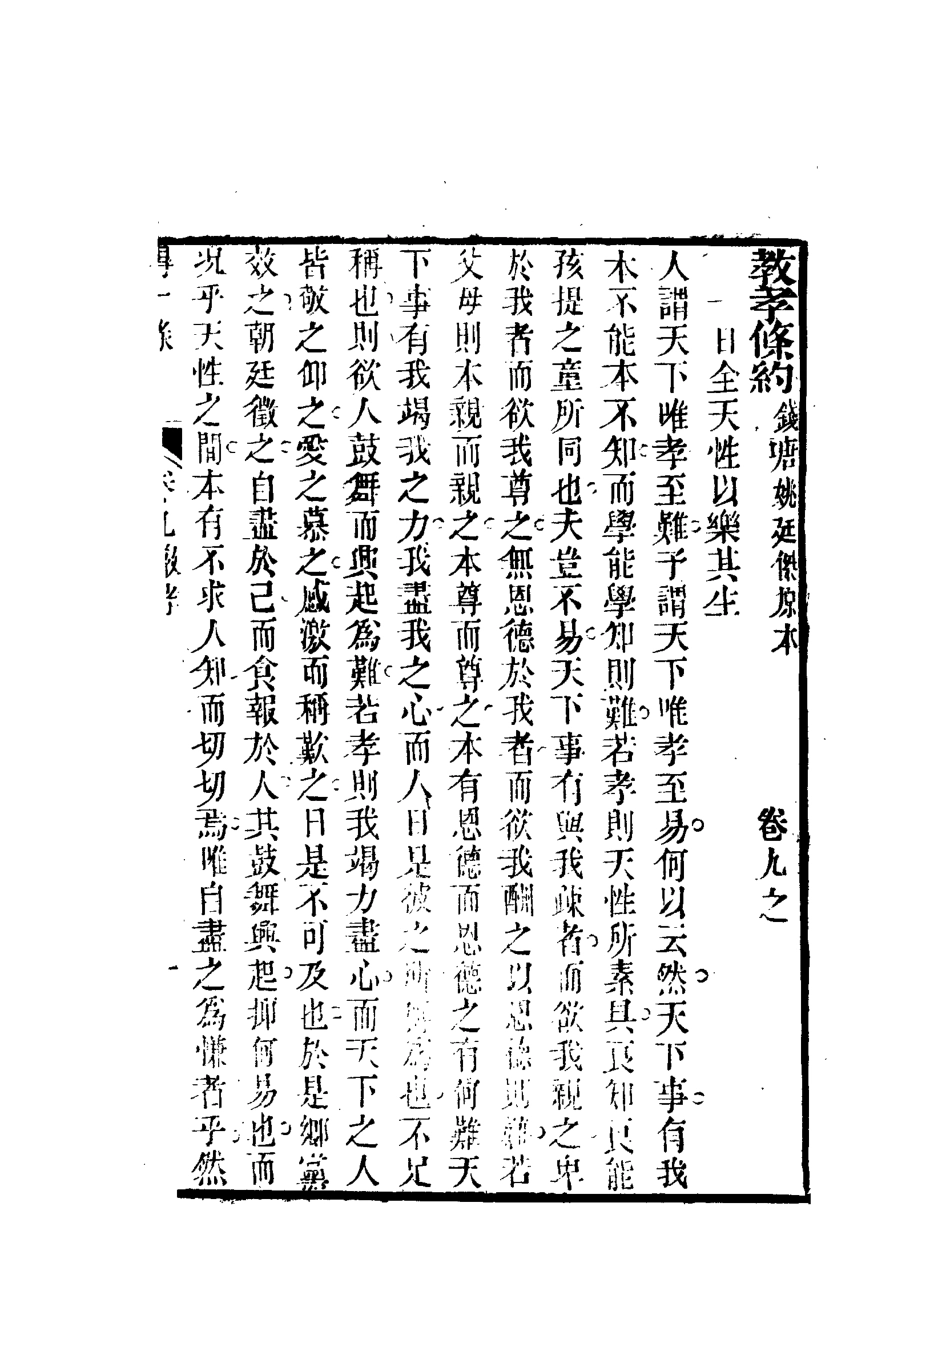 教孝條約 錢塘姚廷傑原本 卷九之
一曰全天性以樂其生
人謂天下唯孝至難予謂天下唯孝至易何以云然天下事有我
本不能本不知而學能學知則難若孝則天性所素具良知良能
孩提之童所同也夫豈不易天下事有與我疎者而欲我親之卑
於我者而欲我尊之無恩德於我者而欲我酬之以恩德則難若
父母則本親而親之本尊而尊之本有恩德而恩德之有何難天
下事有我竭我之力我盡我之心而人曰是彼之所當為也不足
稱也則欲人鼓舞而興起為難若孝則我竭力盡心而天下之人
皆敬之仰之愛之慕之感激而稱歎之曰是不可及也於是鄉黨
效之朝廷徵之自盡於己而食報於人其鼓舞興起抑何易也而
況乎天性之間本有不求人知而切切焉唯自盡之為慊者乎然
卷九教孝 一